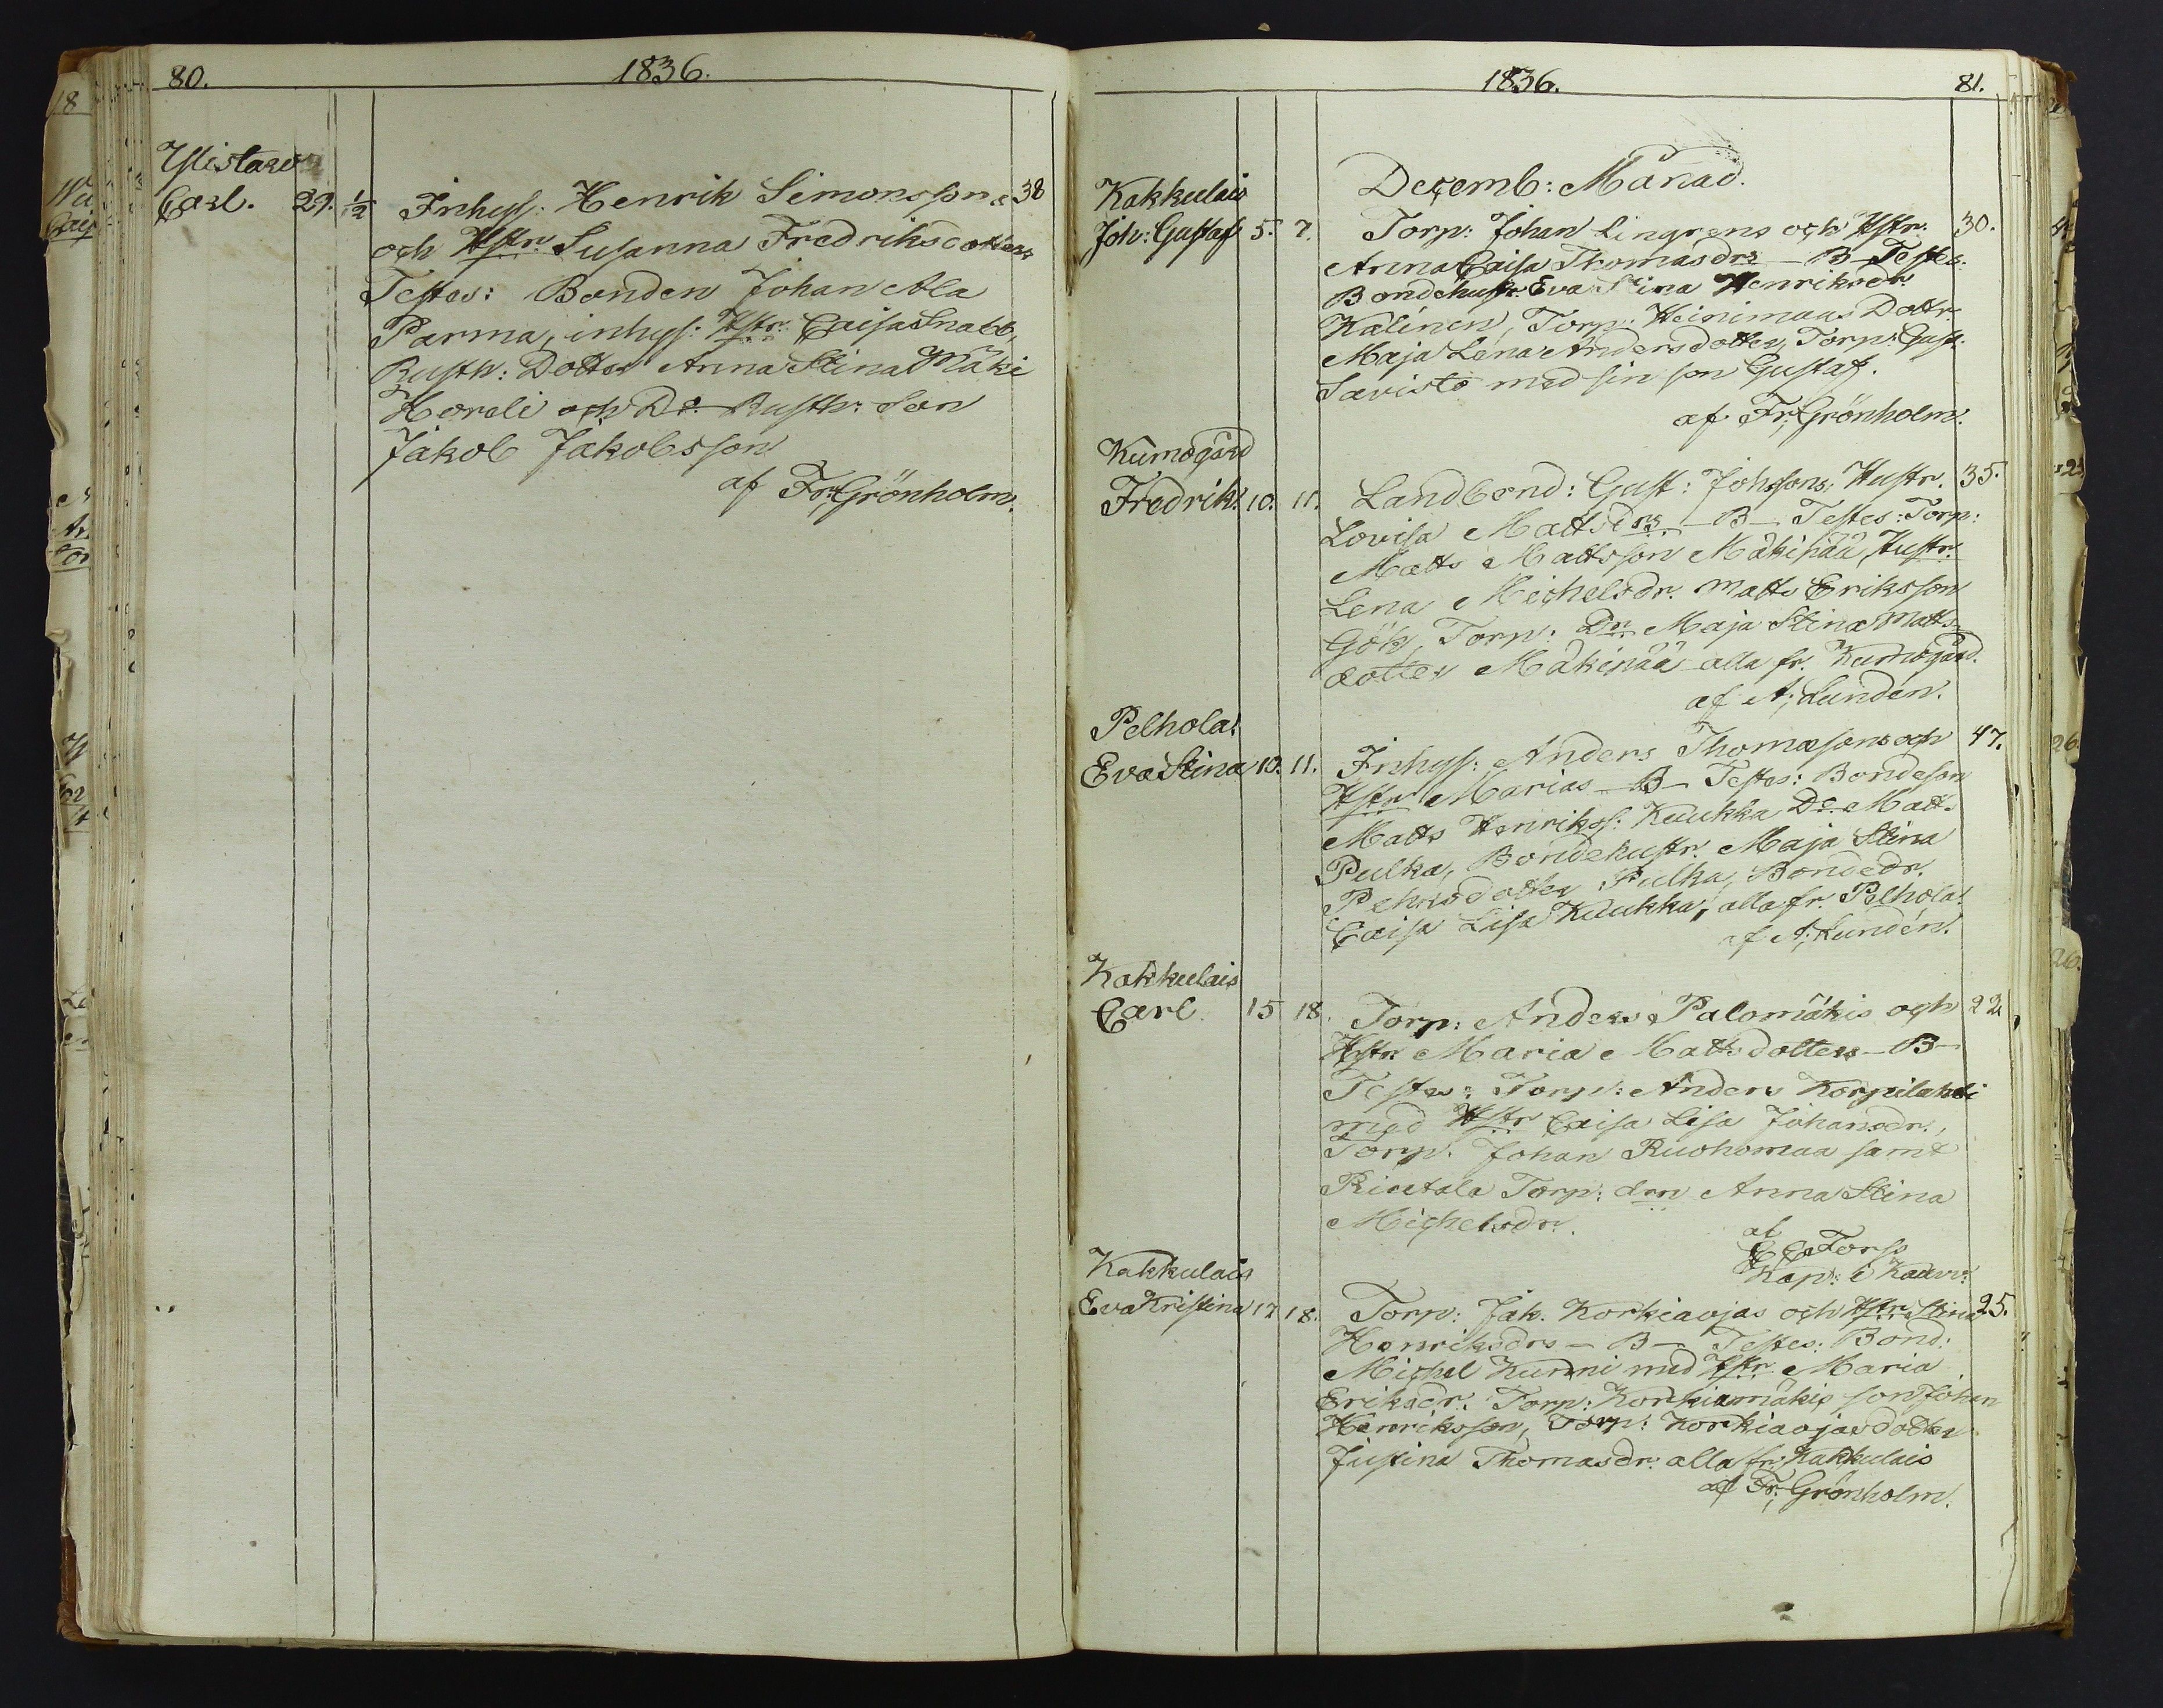 80. 1836.
Ylistaro
Carl. 29. 1/2 Inhys: Henrik Simonssons 38
och Hstr. Susanna Fredriksdotters
Testes: Bonden Johan Ala
Parma, inhys: Hstr. Caisa Snabb,
Rusth: Dotter Anna Stina Mäki
Horeli och Do Rusth: Son
Jakob Jakobsson
af Fr: Grönholm.
1836. 81.
Decemb: Månad.
Kakkulais
Joh: Gustaf 5. 7. Torp: Johan Lingrens och Hstr. 30.
Anna Caisa Thomasdrs - B - Testes:
Bondehustr. Eva Stina Henriksdr.
Kalinen, Torp: Heinimaas Dottr.
Maja Lena Andersdotter, Torp: Gust.
Savisto med sin son Gustaf.
af Fr: Grönholm.
Kumogård
Fredrik. 10. 11. Landbond: Gust: Johssons, Hustr. 35.
Lovisa Mattsdrs - B - Testes: Torp:
Matts Mattsson Mäkinää, Hustr.
Lena Michelsdr. Matts Eriksson
Gök, Torp: Dr. Maja Stina Matts-
dotter Mäkinää alla fr. Kumogård.
af A: Lundén.
Pelhola.
Eva Stina 10. 11. Inhys: Anders Thomasons och 47.
Hstr Marias - B - Testes: Bondeson
Matts Henrikss: Kuukka Do Matts
Pulka, Bondehustr. Maja Stina
Pehrsdotter Pulka, Bondedr.
Caisa Lisa Kuukka, alla fr. Pelhola.
af A: Lundén.
Kakkulais
Carl. 15 18. Torp: Anders Palomäkis och 22
Hstr Maria Mattsdotters - B -
Testes: Torp: Anders Korpilahti
med Hstr Caisa Lisa Johansdr.,
Torp. Johan Ruohomaa samt
Rintala Torp: drn Anna Stina
Michelsdr.
af
Torss
Kap: i Kauv:
Kakkulais
Eva Kristina 17 18. Torp: Jak. Korkiaojas och Hstr. Stina 25.
Henriksdrs - B - Testes: Bond:
Michel Kurmi med Hstr Maria
Eriksdr. Torp: Korkiamäkis son Johan
Henriksson, Torp: Korkiaojas dotter
Justina Thomasdr. alla fr. Kakkulais
af Fr: Grönholm.